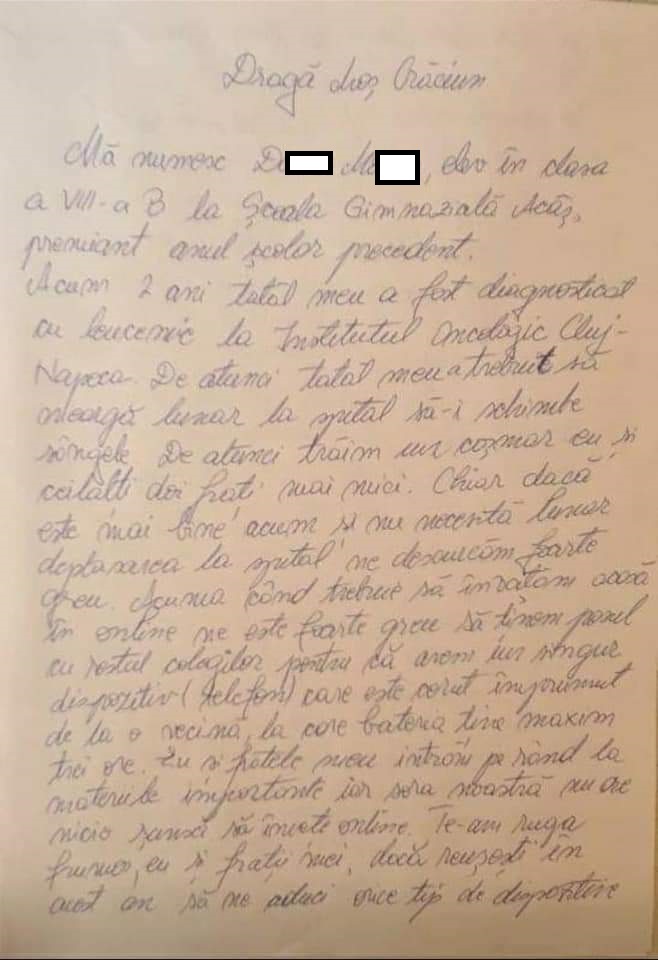 Dragă Moș Crăciun
Mă numesc D M, elev în clasa
a VIII-a B la Școala Gimnazială Acâș,
premiant anul școlar precedent.
Acum 2 ani tatăl meu a fost diagnosticat
cu leucemie la Institutul Oncologic Cluj-
Napoca. De atunci tatăl meu a trebuit să
meargă lunar la spital să-i schimbe
sângele. De atunci trăim un coșmar eu și
ceilalți doi frați mai mici. Chiar dacă
este mai bine acum și nu necesită lunar
deplasarea la spital ne descurcăm foarte
greu. Acuma când trebuie să învățăm acasă
în online ne este foarte greu să ținem pasul
cu restul colegilor pentru că avem un singur
dispozitiv (telefon) care este cerut împrumut
de la o vecină, la care bateria ține maxim
trei ore. Eu și fratele meu intrăm pe rând la
materiile importante iar sora noastră nu are
nicio șansă să învețe online. Te-am ruga
frumos, eu și frații mei, dacă reușești în
acest an să ne aduci orice tip de dispozitive